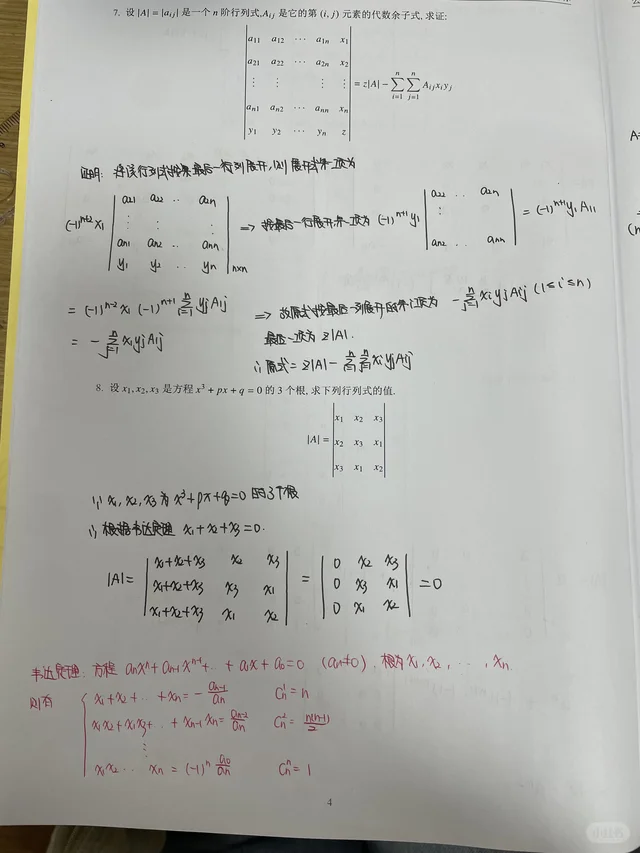 7. 设 |A| = |a_{ij}| 是一个 n 阶行列式,A_{ij} 是它的第 (i, j) 元素的代数余子式, 求证:
| a_{11} a_{12} ··· a_{1n} x_1 |
| a_{21} a_{22} ··· a_{2n} x_2 |
| ⋮ ⋮ ⋮ ⋮ | = z|A| − ∑_{i=1}^{n} ∑_{j=1}^{n} A_{ij}x_iy_j
| a_{n1} a_{n2} ··· a_{nn} x_n |
| y_1 y_2 ··· y_n z |
证明: 将该行列式按最后一列展开, 则展开式第一项为
(-1)^{n+2} x_1 | a_{21} a_{22} ·· a_{2n} ; ⋮ ⋮ ⋮ ; a_{n1} a_{n2} ·· a_{nn} ; y_1 y_2 ·· y_n |_{n×n} ⇒ 按最后一行展开,第一项为 (-1)^{n+1} y_1 | a_{22} ·· a_{2n} ; ⋮ ; a_{n2} ·· a_{nn} | = (-1)^{n+1} y_1 A_{11}
= (-1)^{n-2} x_1 (-1)^{n+1} ∑_{j=1}^{n} y_j A_{1j} ⇒ 故原式按最后一列展开的第i项为 -∑_{j=1}^{n} x_i y_j A_{ij} (1≤i≤n)
= -∑_{j=1}^{n} x_1 y_j A_{1j} 最后一项为 z|A|.
∴ 原式 = z|A| - ∑_{i=1}^{n} ∑_{j=1}^{n} x_i y_j A_{ij}
8. 设 x_1, x_2, x_3 是方程 x^3 + px + q = 0 的 3 个根, 求下列行列式的值.
| x_1 x_2 x_3 |
|A| = | x_2 x_3 x_1 |
| x_3 x_1 x_2 |
∵ x_1, x_2, x_3 为 x^3+px+q=0 的3个根
∴ 根据韦达定理 x_1+x_2+x_3=0.
| x_1+x_2+x_3 x_2 x_3 | | 0 x_2 x_3 |
|A| = | x_1+x_2+x_3 x_3 x_1 | = | 0 x_3 x_1 | = 0
| x_1+x_2+x_3 x_1 x_2 | | 0 x_1 x_2 |
韦达定理: 方程 a_nx^n+a_{n-1}x^{n-1}+··+a_1x+a_0=0 (a_n≠0), 根为 x_1, x_2, ···, x_n.
则有 { x_1+x_2+··+x_n = -\frac{a_{n-1}}{a_n} C_n^1 = n
x_1x_2+x_1x_3+··+x_{n-1}x_n = \frac{a_{n-2}}{a_n} C_n^2 = \frac{n(n-1)}{2}
⋮
x_1x_2··x_n = (-1)^n \frac{a_0}{a_n} C_n^n = 1
4
小红书